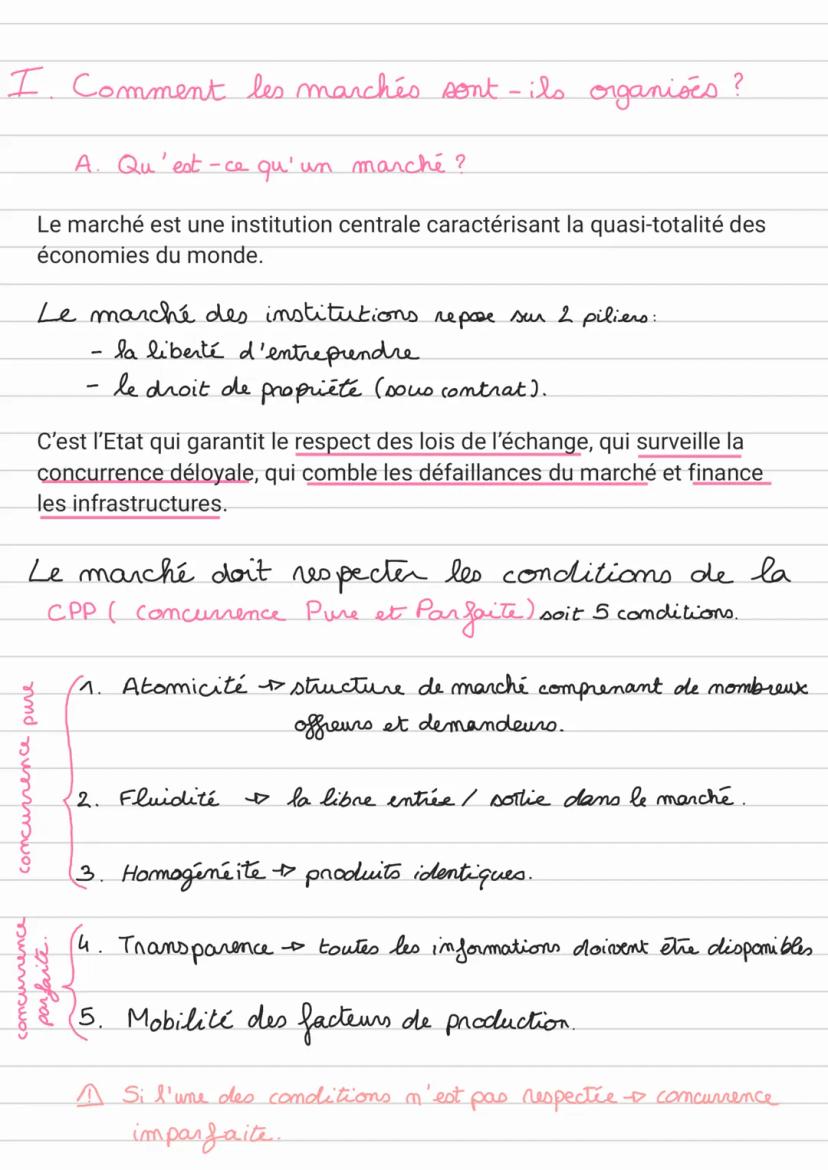 I. Comment les marchés sont-ils organisés ?
A. Qu'est-ce qu'un marché ?
Le marché est une institution centrale caractérisant la quasi-totalité des
économies du monde.
Le marché des institutions repose sur 2 piliers :
- la liberté d'entreprendre
- le droit de propriété (sous contrat).
C'est l'Etat qui garantit le respect des lois de l'échange, qui surveille la
concurrence déloyale, qui comble les défaillances du marché et finance
les infrastructures.
Le marché doit respecter les conditions de la
CPP ( Concurrence Pure et Parfaite) soit 5 conditions.
concurrence pure
1. Atomicité → structure de marché comprenant de nombreux
offreurs et demandeurs.
2. Fluidité → la libre entrée / sortie dans le marché.
3. Homogénéité → produits identiques.
concurrence
parfaite.
4. Transparence → toutes les informations doivent être disponibles
5. Mobilité des facteurs de production.
⚠ Si l'une des conditions n'est pas respectée → concurrence
imparfaite.